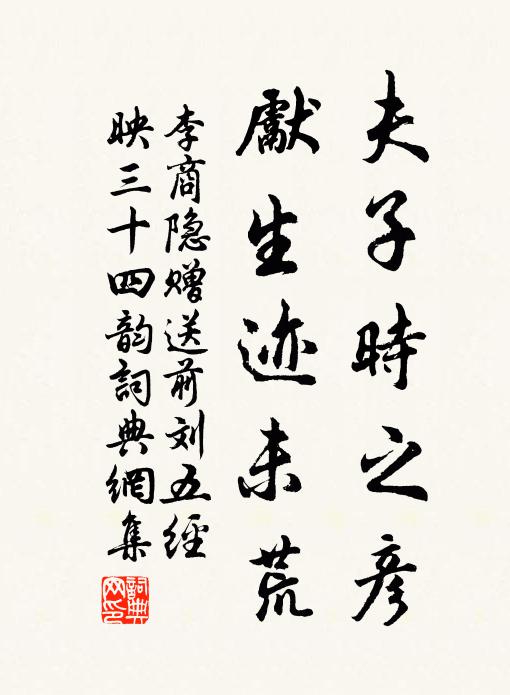 夫子時之彦
獻生迹未荒
李商隐赠送前刘五經
映三十四韵詞典網集
詞典网印